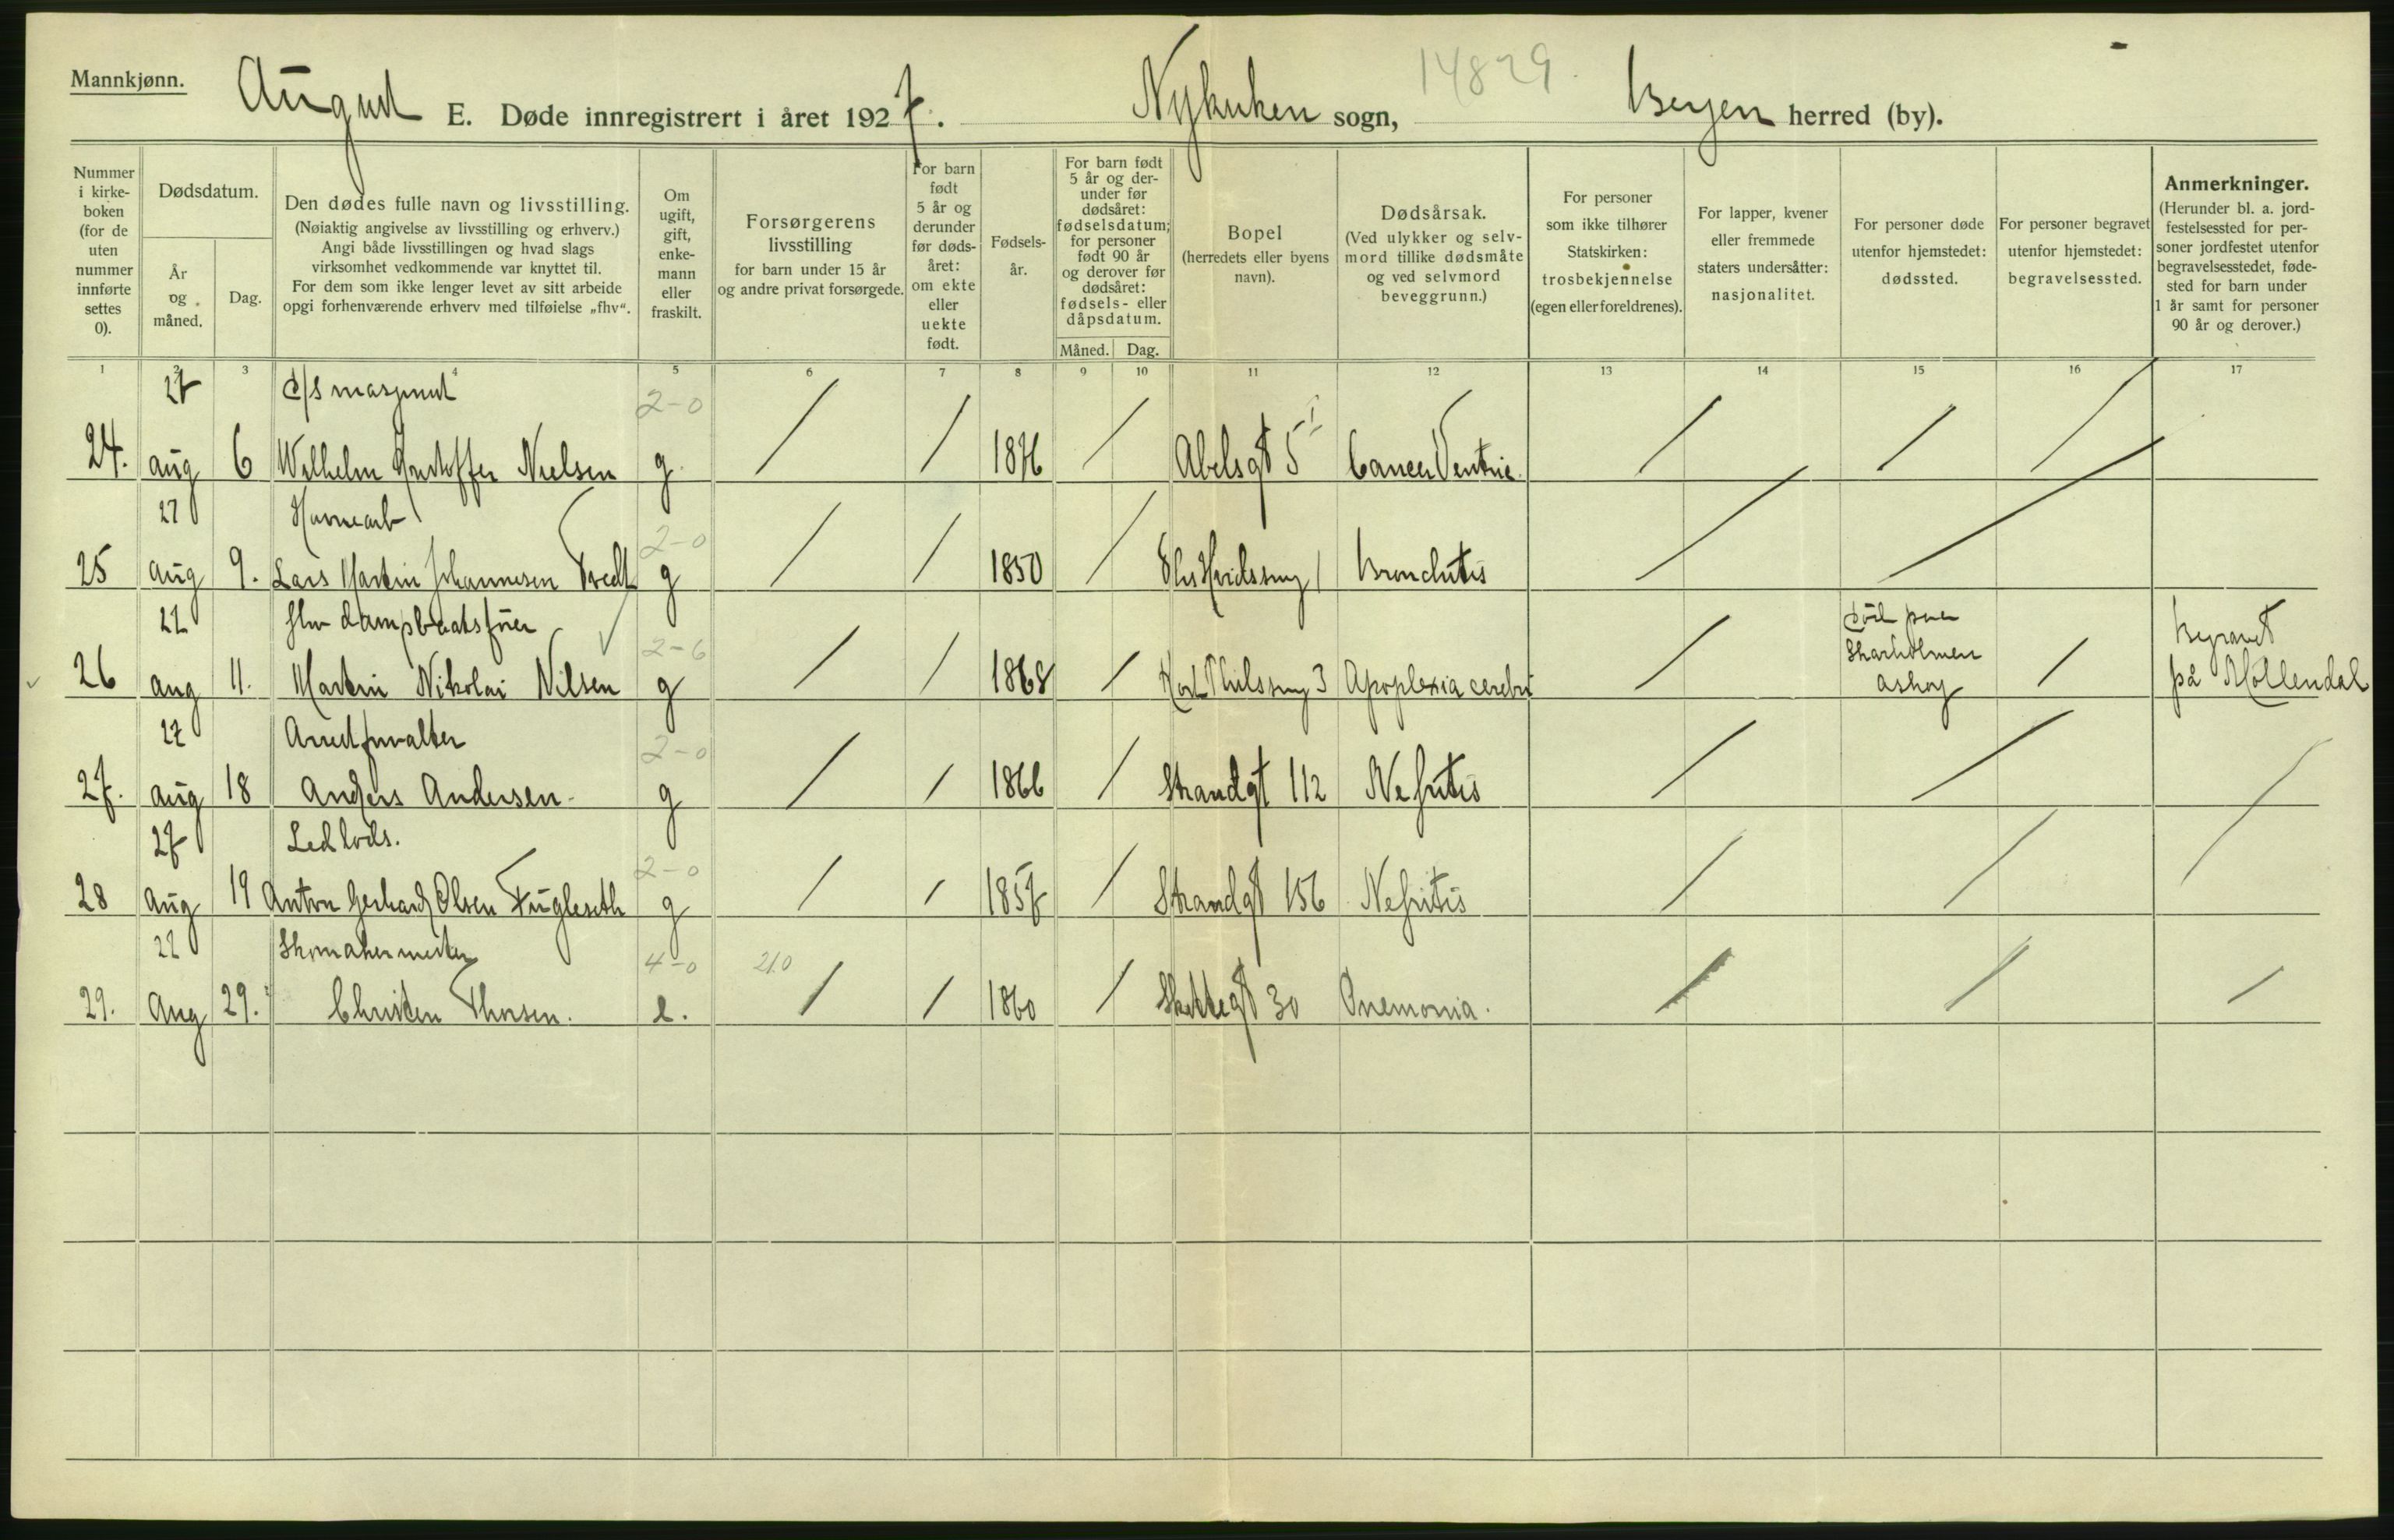 Mannkjønn.
August E. Døde innregistrert i året 1927. Nykirken sogn, 14829. Bergen herred (by).
Nummer i kirkeboken (for de uten nummer innførte settes 0).
Dødsdatum.
År og måned.
Dag.
Den dødes fulle navn og livsstilling.
(Nøiaktig angivelse av livsstilling og erhverv.)
Angi både livsstillingen og hvad slags
virksomhet vedkommende var knyttet til.
For dem som ikke lenger levet av sitt arbeide
opgi forhenværende erhverv med tilføielse „fhv“.
Om ugift, gift, enkemann eller fraskilt.
Forsørgerens livsstilling
for barn under 15 år
og andre privat forsørgede.
For barn født 5 år og derunder før dødsåret: om ekte eller uekte født.
Fødselsår.
For barn født 5 år og derunder før dødsåret: fødselsdatum; for personer født 90 år og derover før dødsåret: fødsels- eller dåpsdatum.
Måned. Dag.
Bopel
(herredets eller byens navn).
Dødsårsak.
(Ved ulykker og selvmord tillike dødsmåte og ved selvmord beveggrunn.)
For personer som ikke tilhører Statskirken: trosbekjennelse
(egen eller foreldrenes).
For lapper, kvener eller fremmede staters undersåtter: nasjonalitet.
For personer døde utenfor hjemstedet: dødssted.
For personer begravet utenfor hjemstedet: begravelsessted.
Anmerkninger.
(Herunder bl. a. jordfestelsessted for personer jordfestet utenfor begravelsesstedet, fødested for barn under 1 år samt for personer 90 år og derover.)
1 2 3 4 5 6 7 8 9 10 11 12 13 14 15 16 17
27 d/s maskinist 2-0
24. aug 6 Wilhelm Kristoffer Nielsen g. / / 1876 / Abelsgt 5 Cancer Ventric. / / /
27 Havnearb 2-0
25 aug 9. Lars Martin Johannesen Tvedt g / / 1850 / 1 Bronchitis / /
27 fhv dampbaatsfører 2-6
26 aug 11. Martin Nikolai Nilsen g / / 1868 / 3 Apoplexia cerebri / Skarholmen Askøy / Begravet på Møllendal
27 Arrestforvalter 2-0
27. aug 18 Anders Andersen g / / 1866 / Strandgt 112 Nefritis / / /
27 Led lods. 2-0
28 Aug 19 Anton Gerhard Olsen Fugleseth g / / 1857 / Strandgt 156 Nefritis / /
27 Skomakermester 4-0 210
29. Aug 29. Christen Thorsen. e. / / 1860 / Skottegt 30 Pnemonia. / / /